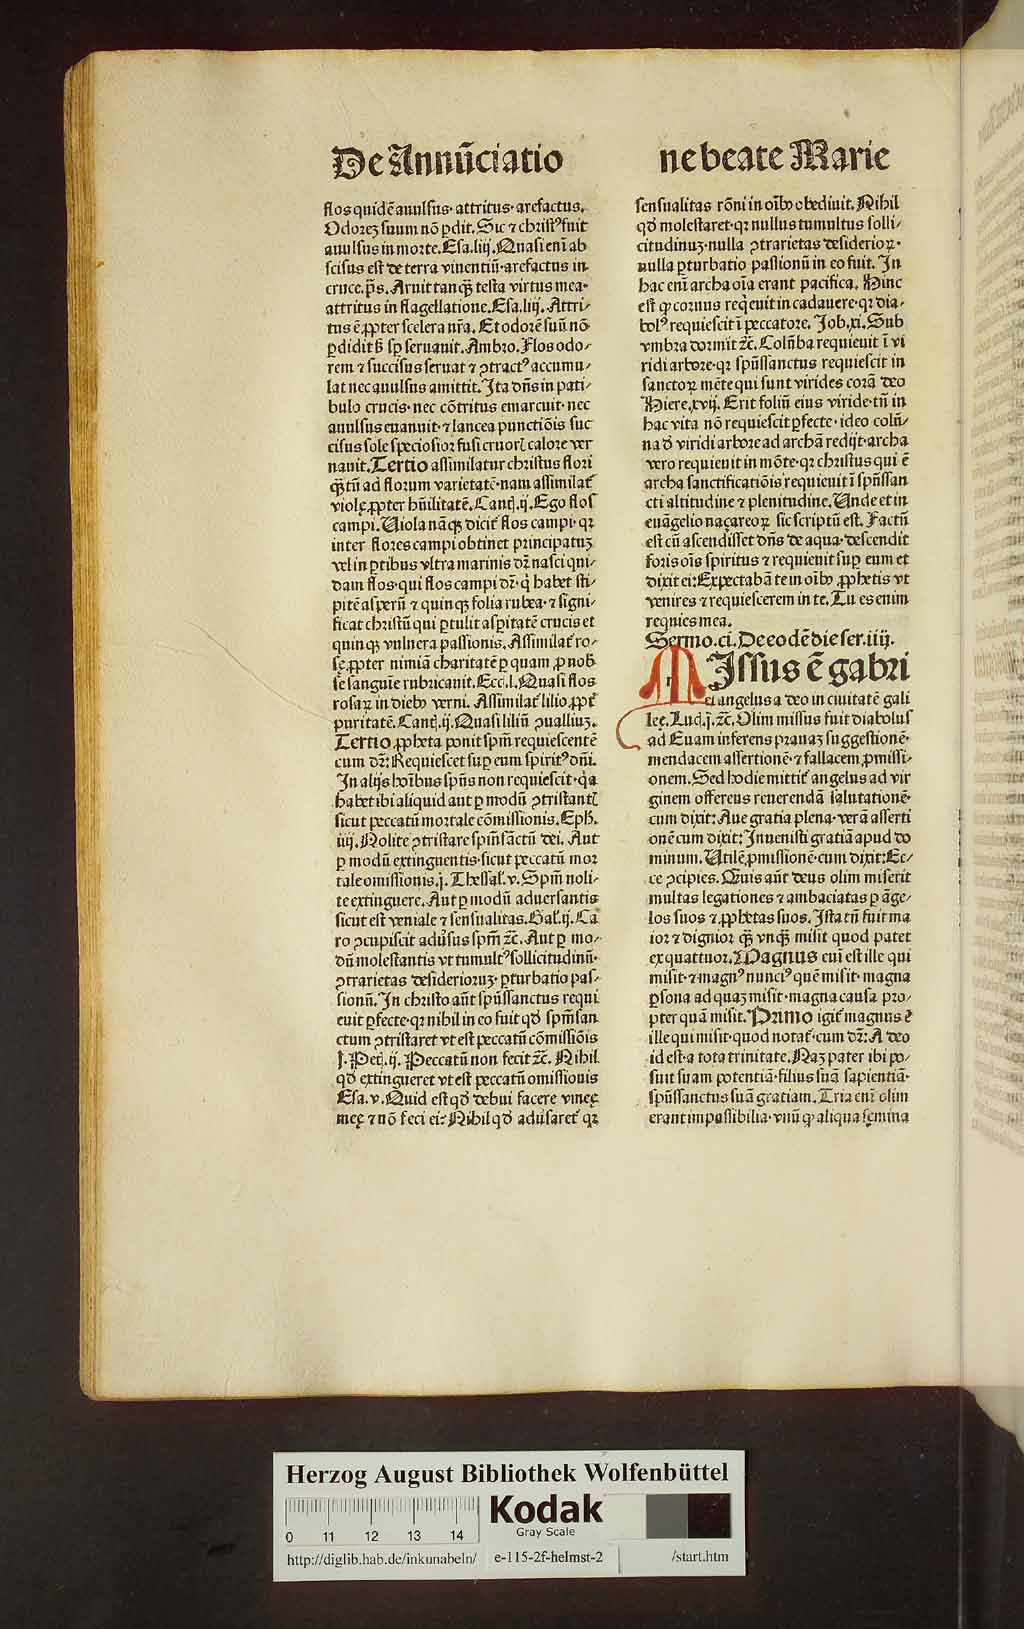 De Annũciatio
flos quidẽ auulsus· attritus· arefactus.
Odorez suum nõ ꝑdit. Sic ⁊ christꝰ fuit
auulsus in morte. Esa. liij. Quasi eni ab
scisus est de terra viuentiũ· arefactus in
cruce. p̃s. Aruit tanqꝫ testa virtus mea·
attritus in flagellatione. Esa. liij. Attri⸗
tus ẽ ꝓpter scelera nr̃a. Et odorẽ suũ nõ
ꝑdidit sꝫ sꝑ seruauit. Ambro. Flos odo⸗
rem ⁊ succisus seruat ⁊ ꝯtractꝰ accumu⸗
lat nec auulsus amittit. Ita dñs in pati⸗
bulo crucis· nec cõtritus emarcuit· nec
auulsus euanuit· ⁊ lancea punctiõis suc
cisus sole speciosior fusi cruorꝭ calore ver
nauit. Tertio assimilatur christus flori
qꝫtũ ad florum varietatẽ· nam assimilat᷑
violę ꝓpter hũilitatẽ. Canṭ. ij. Ego flos
campi. Uiola nãqꝫ dicit᷑ flos campi· qꝛ
inter flores campi obtinet principatuꝫ
vel in ꝑtibus vltra marinis dr̃ nasci qui⸗
dam flos· qui flos campi dr̃· q̇ habet sti⸗
pitẽ asperũ ⁊ quinqꝫ folia rubea· ⁊ signi⸗
ficat christũ qui ꝑtulit asꝑitatẽ crucis et
quinqꝫ vulnera passionis. Assimilat᷑ ro⸗
sę ꝓpter nimiã charitatẽ ꝑ quam ꝓ nob̃
se sanguĩe rubricauit. Ecc̃. l. Quasi flos
rosaꝝ in diebꝰ verni. Assimilat᷑ lilio ꝓpt᷑
puritatẽ. Canṭ. ij. Quasi liliũ ꝯualliuꝫ.
Tertio ꝓpheta ponit spm̃ requiescentẽ
cum dr̃: Requiescet suꝑ eum spiritꝰ dñi.
In alijs hoĩbus spũs non requiescit· q̇a
habet ibi aliquid aut ꝑ modũ ꝯtristantꝭ
sicut peccatũ mortale cõmissionis. Eph̃.
iiij. Nolite ꝯtristare spm̃ sãctũ dei. Aut
ꝑ modũ extinguentis· sicut peccatũ mor
tale omissionis. j. Thessal̃. v. Spm̃ noli⸗
te extinguere. Aut ꝑ modũ aduersantis
sicut est veniale ⁊ sensualitas. Gal̃. ij. Ca
ro ꝯcupiscit adũsus spm̃ ⁊c̃. Aut ꝑ mo⸗
dũ molestantis vt tumultꝰ sollicitudinũ·
ꝯtrarietas desiderioruꝫ· ꝑturbatio pas⸗
sionũ. In christo aũt spũssanctus requi
euit ꝑfecte· qꝛ nihil in eo fuit qd̃ spm̃san
ctum ꝯtristaret vt est peccatũ cõmissiõis
j. Peṭ. ij. Peccatũ non fecit ⁊c̃. Nihil
qd̃ extingueret vt est peccatũ omissionis
Esa. v. Quid est qd̃ debui facere vineę
meę ⁊ nõ feci ei: Nihil qd̃ adũsaret᷑ qꝛ
ne beate Marie
sensualitas rõni in oĩbꝰ obediuit. Nihil
qd̃ molestaret· qꝛ nullus tumultus solli⸗
citudinuꝫ· nulla ꝯtrarietas desiderioꝝ·
nulla ꝑturbatio passionũ in eo fuit. In
hac enĩ archa oĩa erant pacifica. Hinc
est ꝙ coruus req̇euit in cadauere· qꝛ dia⸗
bolꝰ requiescit ĩ peccatore. Job. xi. Sub
vmbra dormit ⁊c̃. Colũba requieuit ĩ vi
ridi arbore· qꝛ spũssanctus requiescit in
sanctoꝝ mẽte qui sunt virides corã deo
Hiere. xvij. Erit foliũ eius viride· tñ in
hac vita nõ requiescit ꝑfecte· ideo colũ⸗
na d̃ viridi arbore ad archã redijt· archa
vero requieuit in mõte· qꝛ christus qui ẽ
archa sanctificatiõis requieuit ĩ spũssan
cti altitudine ⁊ plenitudine. Unde et in
euãgelio naçareoꝝ sic scriptũ est. Factũ
est cũ ascendisset dñs de aqua· descendit
foris oĩs spiritus ⁊ requieuit suꝑ eum et
dixit ei: Expectabã te in oĩbꝰ ꝓphetis vt
venires ⁊ requiescerem in te. Tu es enim
requies mea.
Sermo. ci. De eodẽ die ser. iiij.
MIssus ẽ gabri
el angelus a deo in ciuitatẽ gali
leę. Luc̣. j. ⁊c̃. Olim missus fuit diabolus
ad Euam inferens prauaꝫ suggestionẽ·
mendacem assertionẽ· ⁊ fallacem ꝓmissi⸗
onem. Sed hodie mittit᷑ angelus ad vir
ginem offereus reuerendã salutationẽ·
cum dixit: Aue gratia plena· verã asserti
onẽ cum dixit: Inuenisti gratiã apud do
minum. Utilẽ ꝓmissionẽ· cum dixit: Ec⸗
ce ꝯcipies. Quis aũt deus olim miserit
multas legationes ⁊ ambaciatas ꝑ ãge⸗
los suos ⁊ ꝓphetas suos. Ista tñ fuit ma
ior ⁊ dignior qꝫ vnqꝫ misit quod patet
ex quattuor. Magnus eni est ille qui
misit· ⁊ magnꝰ nunciꝰ quẽ misit· magna
ꝑsona ad quaꝫ misit· magna causa pro⸗
pter quã misit. Primo igit᷑ magnus ẽ
ille qui misit· quod notat᷑· cum dr̃: A deo
id est· a tota trinitate. Naꝫ pater ibi po⸗
suit suam potentiã· filius suã sapientiã·
spũssanctus suã gratiam. Tria eni olim
erant impassibilia· vnũ ꝙ aliqua femina
Herzog August Bibliothek Wolfenbüttel
Kodak
Gray Scale
0 11 12 13 14
http://diglib.hab.de/inkunabeln/ e-115-2f-helmst-2 /start.htm